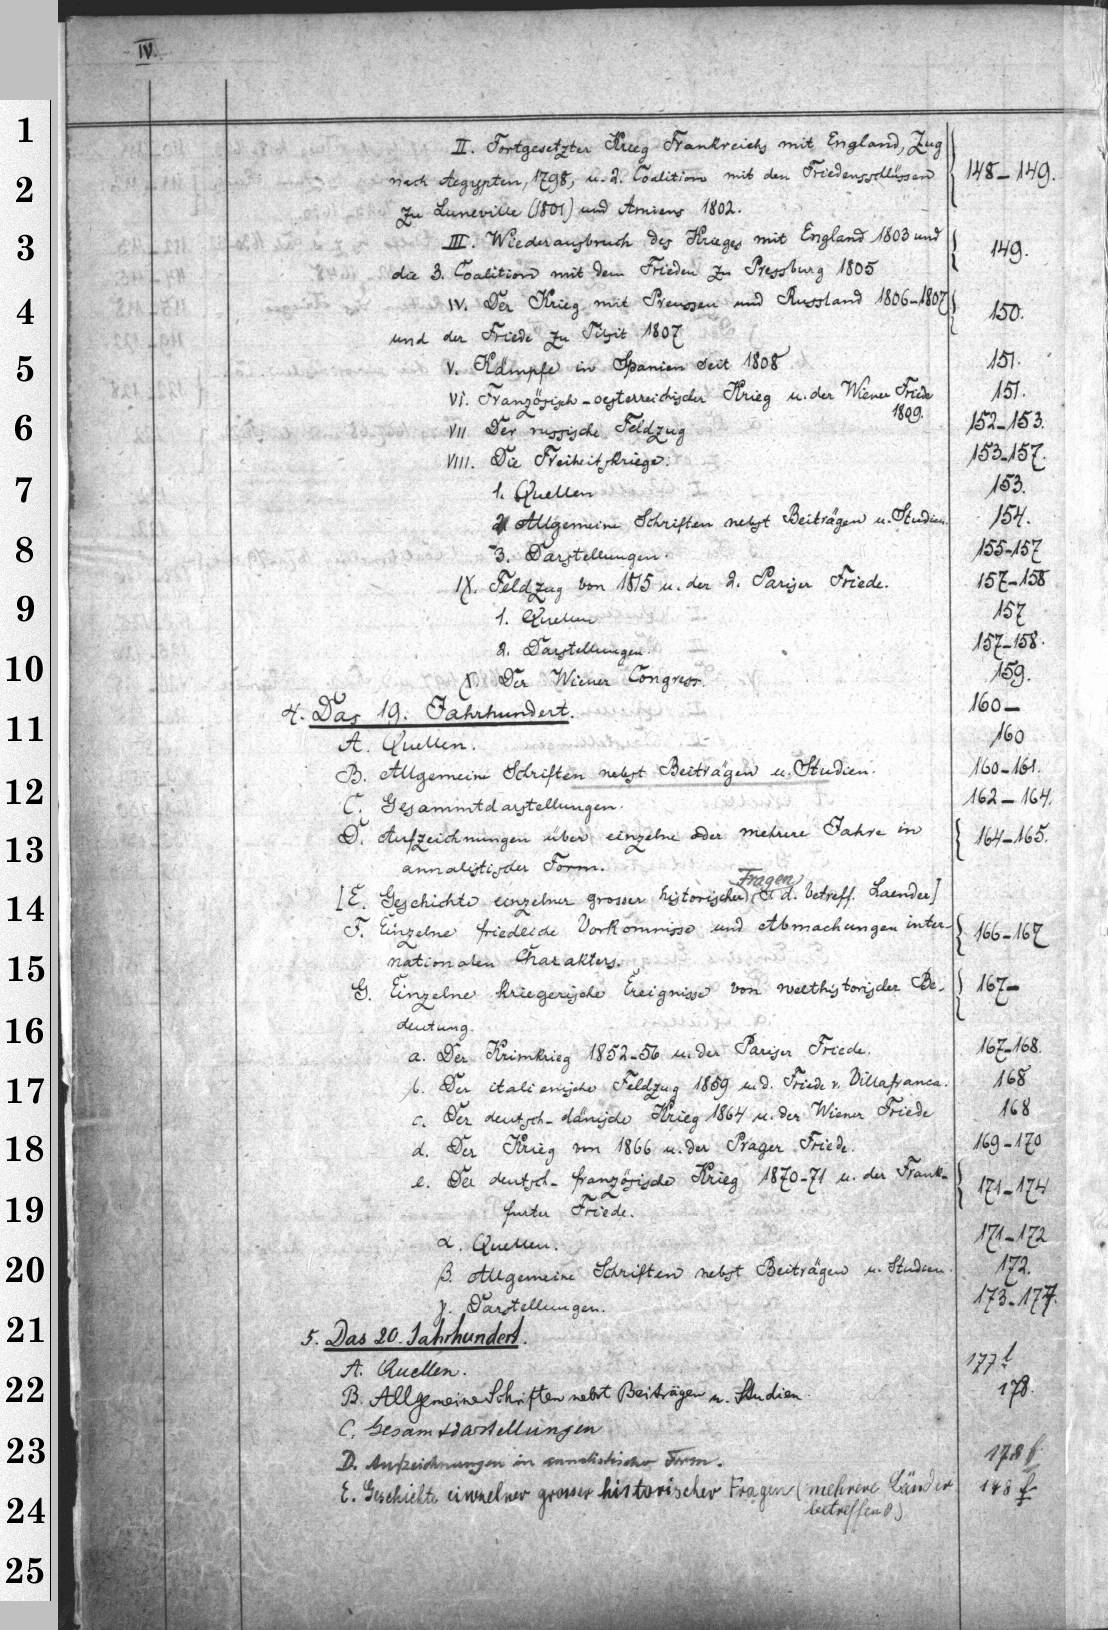 IV.
1
2
3
4
5
6
7
8
9
10
11
12
13
14
15
16
17
18
19
20
21
22
23
24
25
II. Fortgesetzter Krieg Frankreichs mit England, Zug
nach Aegypten, 1798, u. 2. Coalition mit den Friedensschlüssen 148-149.
zu Luneville (1801) und Amiens 1802.
III. Wiederausbruch des Krieges mit England 1803 und
die 3. Coalition mit dem Frieden zu Pressburg 1805 149.
IV. Der Krieg mit Preussen und Russland 1806-1807 150.
und der Friede zu Tilsit 1807
V. Kämpfe in Spanien seit 1808 151.
VI. Französisch-oesterreichischer Krieg u. der Wiener Friede 151.
1809.
VII Der russische Feldzug 152-153.
VIII. Die Freiheitskriege. 153-157.
1. Quellen 153.
2 Allgemeine Schriften nebst Beiträgen u. Studien. 154.
3. Darstellungen. 155-157
IX. Feldzug von 1815 u. der 2. Pariser Friede. 157-158
1. Quellen 157
2. Darstellungen. 157-158.
X) Der Wiener Congress. 159.
4. Das 19. Jahrhundert. 160-
A. Quellen. 160
B. Allgemeine Schriften nebst Beiträgen u. Studien. 160-161.
C. Gesammtdarstellungen. 162-164.
D. Aufzeichnungen über einzelne oder mehrere Jahre in 164-165.
annalistischer Form.
Fragen
[E. Geschichte einzelner grosser historischer d. betreff. Laender]
F. Einzelne friedliche Vorkomnisse und Abmachungen inter- 166-167
nationalen Charakters.
G. Einzelne kriegerische Ereignisse von welthistorischer Be- 167-
deutung.
a. Der Krimkrieg 1852-56 u. der Pariser Friede. 167-168.
b. Der italienische Feldzug 1859 u. d. Friede v. Villafranca. 168
c. Der deutsch-dänische Krieg 1864 u. der Wiener Friede 168
d. Der Krieg von 1866 u. der Prager Friede. 169-170
e. Der deutsch-französische Krieg 1870-71 u. der Frank- 171-174
furter Friede.
α. Quellen. 171-172
β. Allgemeine Schriften nebst Beiträgen u. Studien. 172.
γ. Darstellungen. 173-177.
5. Das 20. Jahrhundert.
A. Quellen. 177
B. Allgemeine Schriften nebst Beiträgen u. Studien. 178.
C. Gesamtdarstellungen
D. Aufzeichnungen in annalistischer Form. 178 f
E. Geschichte einzelner grosser historischer Fragen (mehrere Länder 178 f
betreffend)